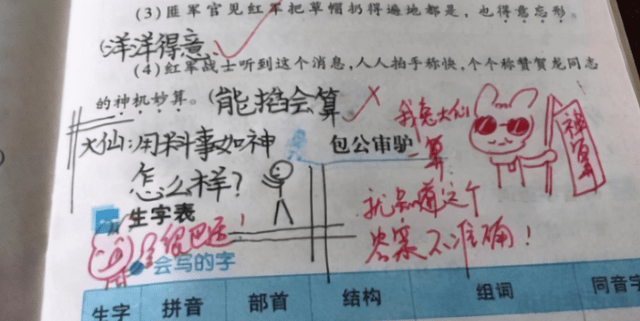 (3)匪军官见红军把草帽扔得遍地都是,也得意忘形。
(洋洋得意
(4)红军战士听到这个消息,人人拍手称快,个个称赞贺龙同志
的神机妙算。(能掐会算
我兔大仙
一算
神算
大仙:用料事如神
包公审驴
怎么样?
就知道这个
答案不准确!
生字表
会写的字
生字 拼音 部首 结构 组词 同音字